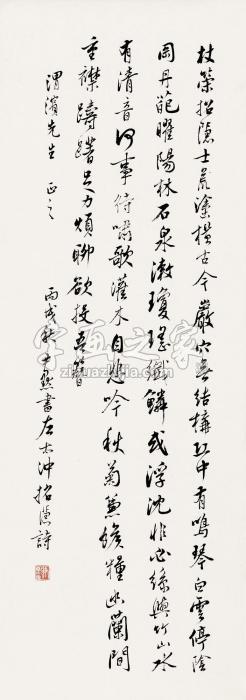 杖策招隱士荒塗橫古今巖穴無結構丘中有鳴琴白雲停陰
岡丹葩曜陽林石泉漱瓊瑤纖鱗或浮沈非必絲與竹山水
有清音何事待嘯歌灌木自悲吟秋菊兼餱糧幽蘭間
重襟躊躇足力煩聊欲投吾簪
渭濱先生 正之
丙戌秋尹默書左太沖招隱詩
字画之家
zihuazhijia.com